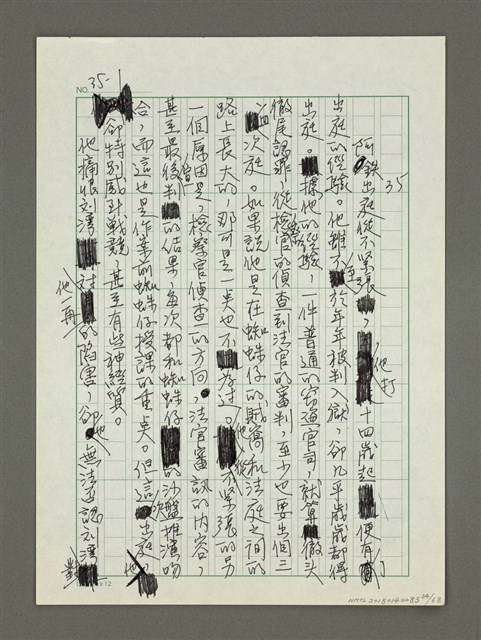 35
阿鉄出庭從不緊張,他打十四歲起便有
出庭的經驗。他雖不至於年年被判入獄,卻几乎歲歲都得
出庭。據他的經驗,一件普通的窃盜官司,就算徹頭
徹尾認罪,從檢察官的偵查到法官的審判,至少也要出個三
次庭。如果說他是在蜘蛛仔的賊窩和法庭之間的
路上長大的,那可是一点也不為过。他從不緊張的另
一個原因是,檢警官偵查的方向,法官審訊的內容,
甚至最後宣判的結果,每次都和蜘蛛仔的沙盤推演吻
合,而這也是作業前蜘蛛仔授課的重点。但這次出庭他
卻特別戰戰兢兢,甚至有些神經質。
他痛恨刘濤对他一再的陷害,卻也無法否認刘濤對
NO. 35-1